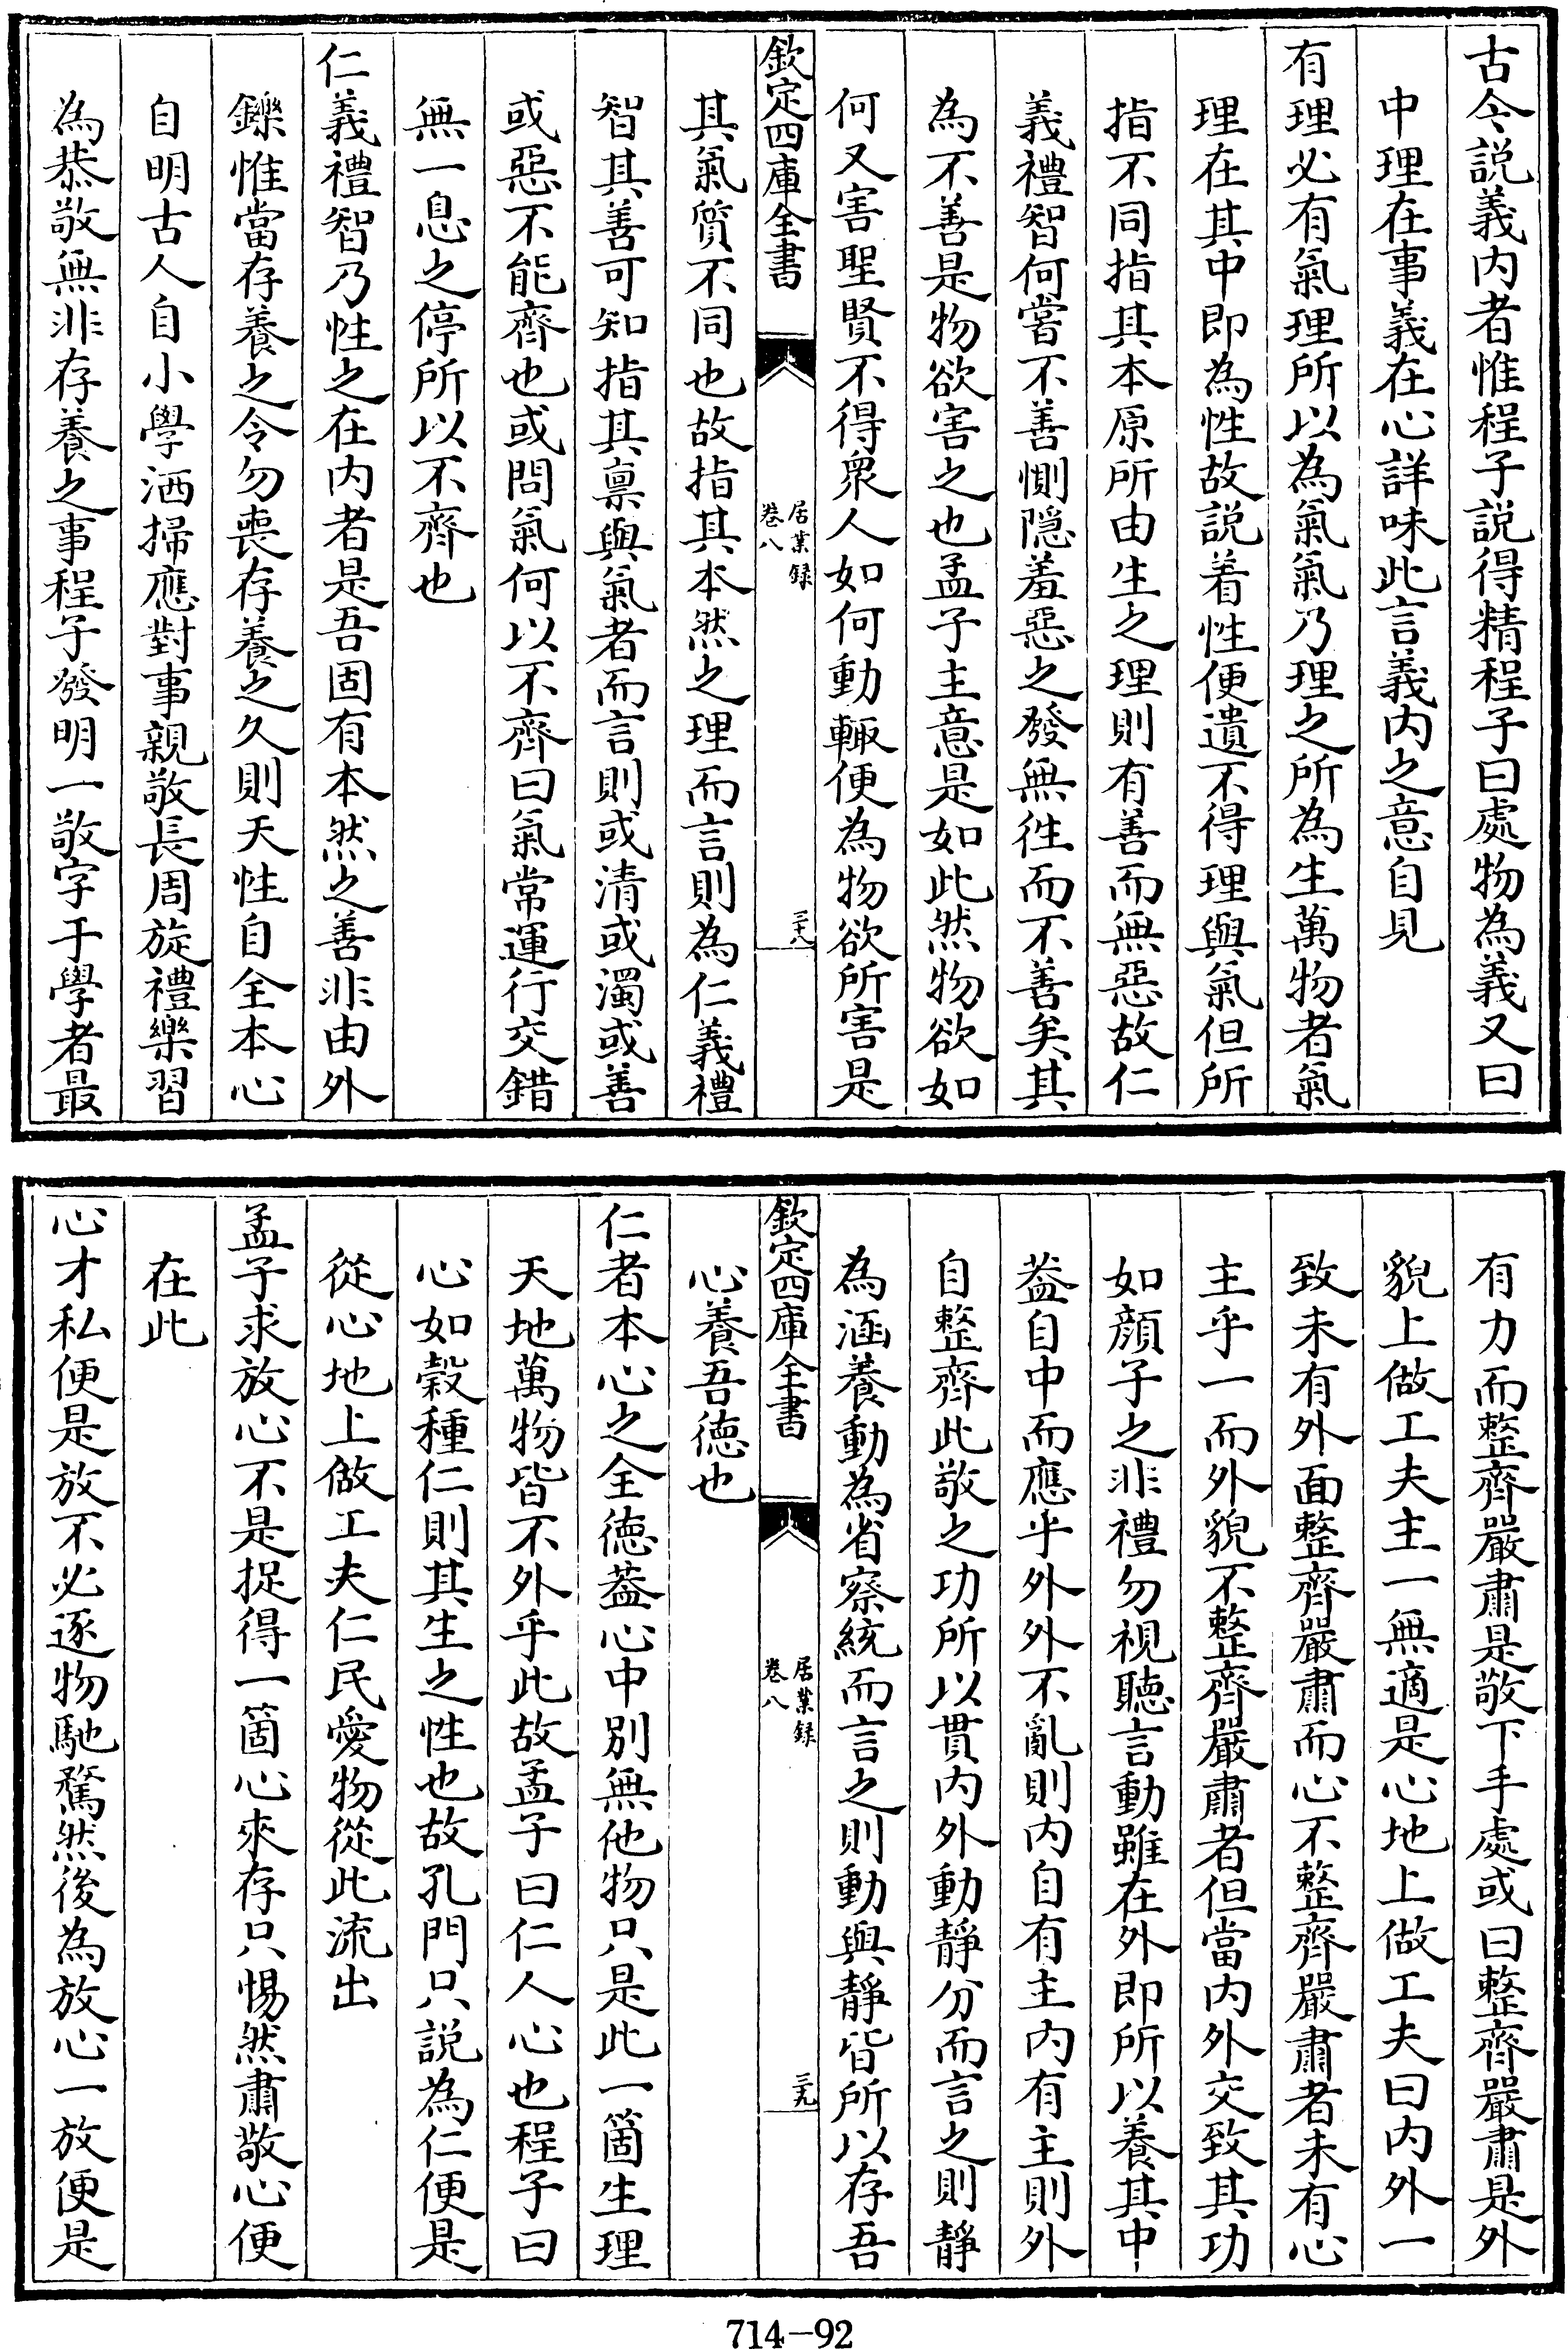 古今説義内者惟程子説得精程子曰處物為義又曰
中理在事義在心詳味此言義内之意自見
有理必有氣理所以為氣氣乃理之所為生萬物者氣
理在其中即為性故説着性便遺不得理與氣但所
指不同指其本原所由生之理則有善而無惡故仁
義禮智何嘗不善惻隠羞惡之發無徃而不善矣其
為不善是物欲害之也孟子主意是如此然物欲如
何又害聖賢不得衆人如何動輙便為物欲所害是
欽定四庫全書
居業録
卷八
三十八
其氣質不同也故指其本然之理而言則為仁義禮
智其善可知指其禀與氣者而言則或清或濁或善
或惡不能齊也或問氣何以不齊曰氣常運行交錯
無一息之停所以不齊也
仁義禮智乃性之在内者是吾固有本然之善非由外
鑠惟當存養之令勿喪存養之久則天性自全本心
自明古人自小學洒掃應對事親敬長周旋禮樂習
為恭敬無非存養之事程子發明一敬字于學者最
有力而整齊嚴肅是敬下手處或曰整齊嚴肅是外
貌上做工夫主一無適是心地上做工夫曰内外一
致未有外面整齊嚴肅而心不整齊嚴肅者未有心
主乎一而外貌不整齊嚴肅者但當内外交致其功
如顔子之非禮勿視聽言動雖在外即所以養其中
葢自中而應乎外外不亂則内自有主内有主則外
自整齊此敬之功所以貫内外動靜分而言之則靜
為涵養動為省察統而言之則動與靜皆所以存吾
欽定四庫全書
居業録
卷八
三十九
心養吾徳也
仁者本心之全徳葢心中別無他物只是此一箇生理
天地萬物皆不外乎此故孟子曰仁人心也程子曰
心如穀種仁則其生之性也故孔門只説為仁便是
從心地上做工夫仁民愛物從此流出
孟子求放心不是捉得一箇心來存只惕然肅敬心便
在此
心才私便是放不必逐物馳騖然後為放心一放便是
714-92